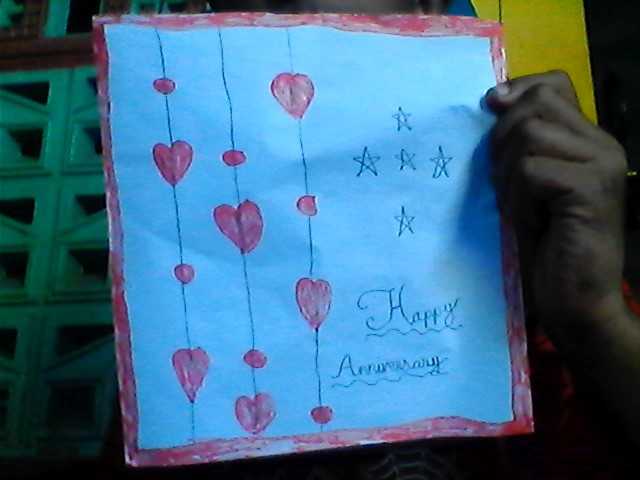 Happy
Anniversary